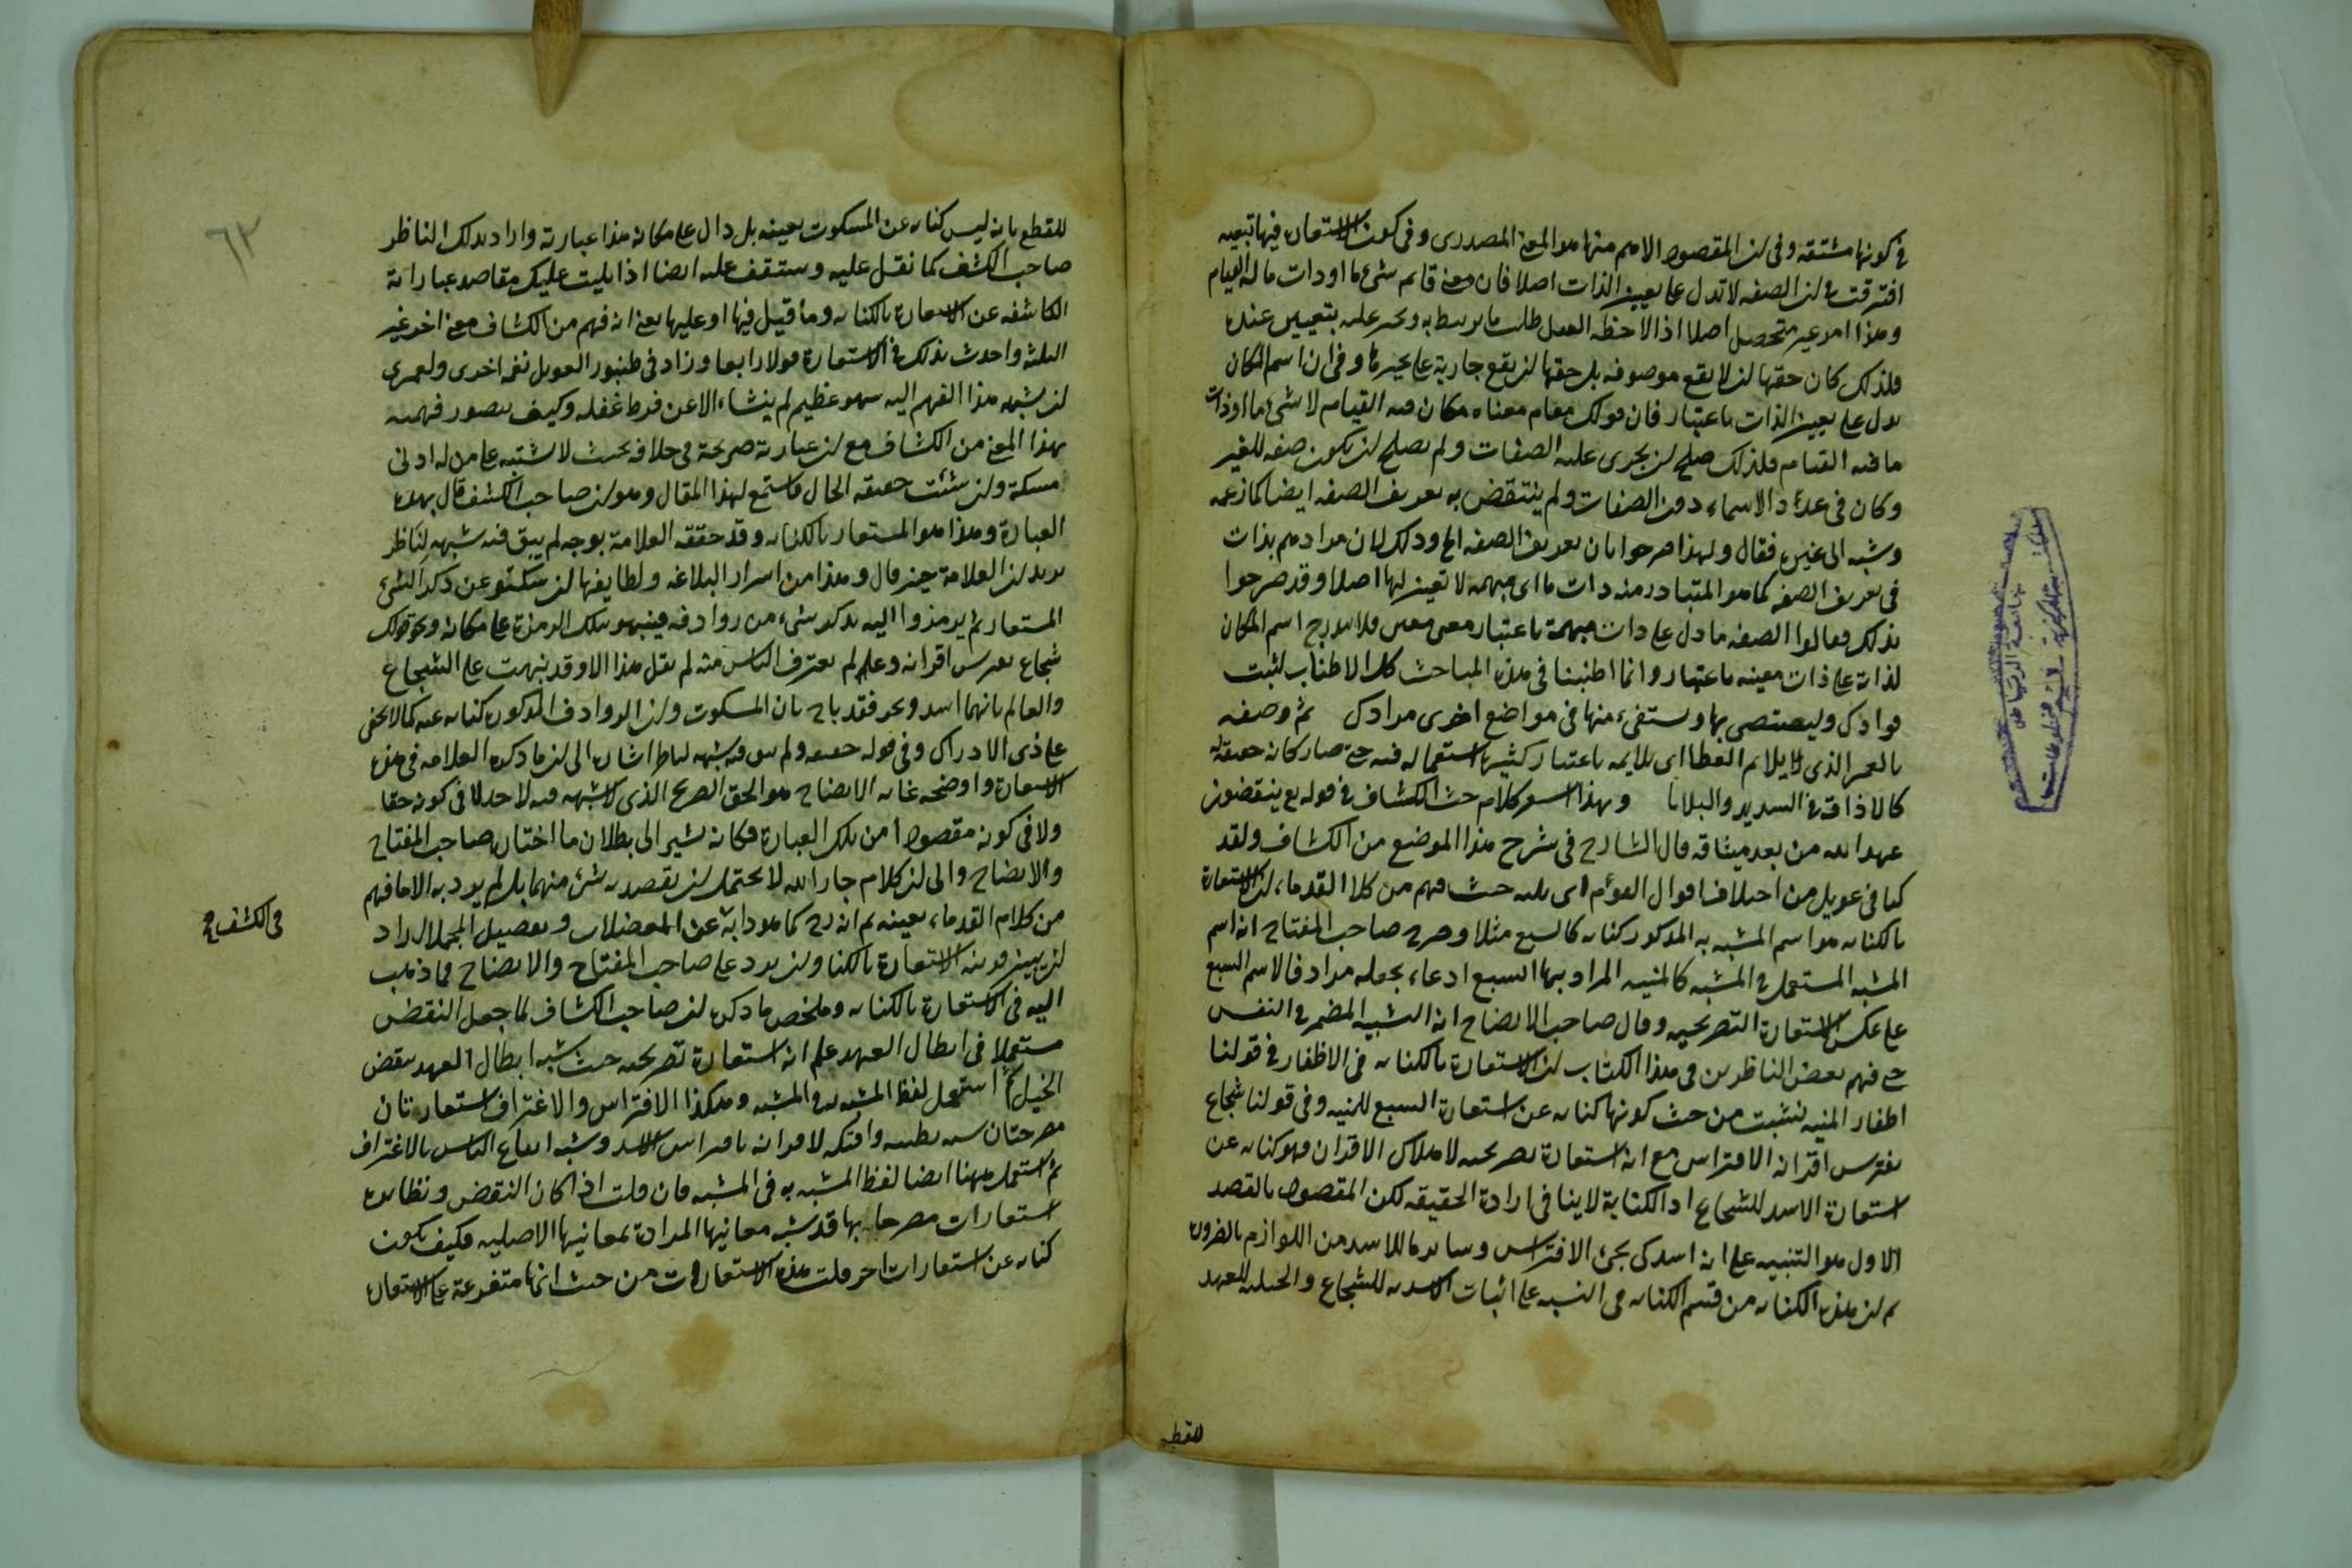 في كونها مشتقة وفي ان المقصود الاهم منها هو المعنى المصدرى وفى كون الاستعارة فيها تبعية
افترقت في ان الصفه لا تدل على تعيين الذات اصلا فان معنى قائم شئ ما او ذات ما له القيام
وهذا امر غير متحصل اصلا اذا لاحظه العقل طلب ما يربط به ويجرى عليه بتعيين عنده
فلذلك كان حقها ان لا يقع موصوفه بل حقها ان يقع جارية على غيرها وفى ان اسم المكان
يدل على تعيين الذات باعتبار فان قولك مقام معناه مكان فيه القيام لا شئ ما او ذات
ما فيه القيام فلذلك صلح لان يجرى عليه الصفات ولم يصلح لان يكون صفه للغير
وكان فى عداد الاسماء دون الصفات ولم ينتقض به تعريف الصفه ايضا كما زعمه
وشبه الى غيره فقال ولهذا صرحوا بان تعريف الصفه الخ وذلك لان مرادهم بذات
فى تعريف الصفه كما هو المتبادر منه ذات ما اى مبهمه لا تعين لها اصلا وقد صرحوا
بذلك فقالوا الصفه ما دل على ذات مبهمة باعتبار معنى معين فلا يندرج اسم المكان
لذاته على ذات معينه باعتبار وانما اطنبنا فى هذه المباحث كل الاطناب لثبت
فوادك وليعتصى بها ويستفئ منها فى مواضع اخرى مرادك ثم وصفه
بالغمر الذى لا يلائم الغطا اى يلايمه باعتبار كثره استعماله فيه حتى صار كانه حقيقه له
كالاذاقة فى الشدايد والبلايا وبهذا اشعر كلام حث الكشاف فى قوله تع ينقضون
عهد الله من بعد ميثاقه قال الشارح فى شرح هذا الموضع من الكشاف ولقد
كنا فى عويل من اختلاف اقوال القوم اى ثلثه حيث فهم من كلام القدماء ان الاستعارة
بالكنايه هو اسم المشبه به المذكور كنايه كالسبع مثلا وصرح صاحب المفتاح انه اسم
المشبه المستعمل فى المشبه كالمنيه المراد بها السبع ادعاء بجعله مرادفا لاسم السبع
على عكس الاستعارة التصريحيه وقال صاحب الايضاح انه التشبيه المضمر فى النفس
حتى فهم بعض الناظرين فى هذا الكتاب ان الاستعارة بالكنايه هى الاظفار فى قولنا
اظفار المنيه نشبت من حيث كونها كنايه عن استعارة السبع للمنيه وفى قولنا شجاع
يفترس اقرانه الافتراس مع انه استعارة تصريحيه لاهلاك الاقران فهو كنايه عن
استعارة الاسد للشجاع اذ الكناية لا ينافى ارادة الحقيقه لكن المقصود بالقصد
الاول هو التنبيه على انه اسد كى يجئ الافتراس وسايرها للاسد من اللوازم بالضروره
ثم ان هذه الكنايه من قسم الكنايه فى النسبه على اثبات الاسديه للشجاع والحبليه للعهد
للقطع
للقطع بانه ليس كنايه عن المسكوت بعينه بل دال على مكانه هذا عبارته واراد بذلك الناظر
صاحب الكشف كما نقل عليه وستقف عليه ايضا اذا تليت عليك مقاصد عباراته
الكاشفه عن الاستعارة بالكنايه وما قيل فيها او عليها يعنى انه فهم من الكشاف معنى اخر غير
الثلثه واحدث بذلك فى الاستعارة قولا رابعا وزاد فى طنبور العويل نغمه اخرى ولعمرى
ان نسبه هذا الفهم اليه سهو عظيم لم ينشاء الا عن فرط غفله وكيف يتصور فهمه
بهذا المعنى من الكشاف مع ان عبارته صريحة فى خلافه بحيث لا يشتبه على من له ادنى
مسكة وان شئت حقيقه الحال فاستمع لهذا المقال وهو ان صاحب الكشف قال بهذه
العبارة وهذا هو المستعار بالكنايه وقد حققه العلامة بوجه لم يبق فيه شبهه لناظر
يريد ان العلامة حين قال وهذا من اسرار البلاغه ولطايفها ان يسكتوا عن ذكر الشئ
المستعار ثم يرمزوا اليه بذكر شئ من روادفه فينبهوا بتلك الرمزة على مكانه ونحو قولك
شجاع يفترس اقرانه وعالم يغترف الناس منه لم نقل هذا الا وقد نبهت على الشجاع
والعالم بانهما اسد وبحر فقد باح بان المسكوت وان الروادف المذكوره كنايه عنه كما لا يخفى
على ذى الادراك وفى قوله حققه ولم يبق فيه شبهه لناظر اشاره الى ان ما ذكره العلامه فى هذه
الاستعارة واوضحه غايه الايضاح هو الحق الصريح الذى لا شبهه فيه لاحد لا فى كونه حقا
ولا فى كونه مقصودا من تلك العبارة فكانه يشير الى بطلان ما اختاره صاحب المفتاح
والايضاح والى ان كلام جار الله لا يحتمل ان يقصد به شئ منهما بل لم يرد به الا ما فهم
من كلام القدماء بعينه ثم انه رح كما هو دابه عن المعضلات وتفصيل المجملات اراد
فى الكشف
ان يبين قرينه الاستعارة بالكنايه وان يرد على صاحب المفتاح والايضاح فيما ذهب
اليه فى الاستعارة بالكنايه وملخص ما ذكره ان صاحب الكشاف لما جعل النقض
مستعملا فى ابطال العهد علم انه استعارة تصريحيه حيث شبه ابطال العهد بنقض
الحبل ثم استعمل لفظ المشبه به فى المشبه وهكذا الافتراس والاغتراف استعارتان
مصرحتان شبه بطشه وفتكه لاقرانه بافتراس الاسد وشبه انتفاع الناس بالاغتراف
ثم استعمل ههنا ايضا لفظ المشبه به فى المشبه فان قلت اذا كان النقض ونظائره
استعارات مصرحا بها قد شبه معانيها المرادة بمعانيها الاصليه فكيف يكون
كنايه عن استعارات اخر قلت هذه الاستعارات من حيث انها متفرعة على الاستعاره
٦٣